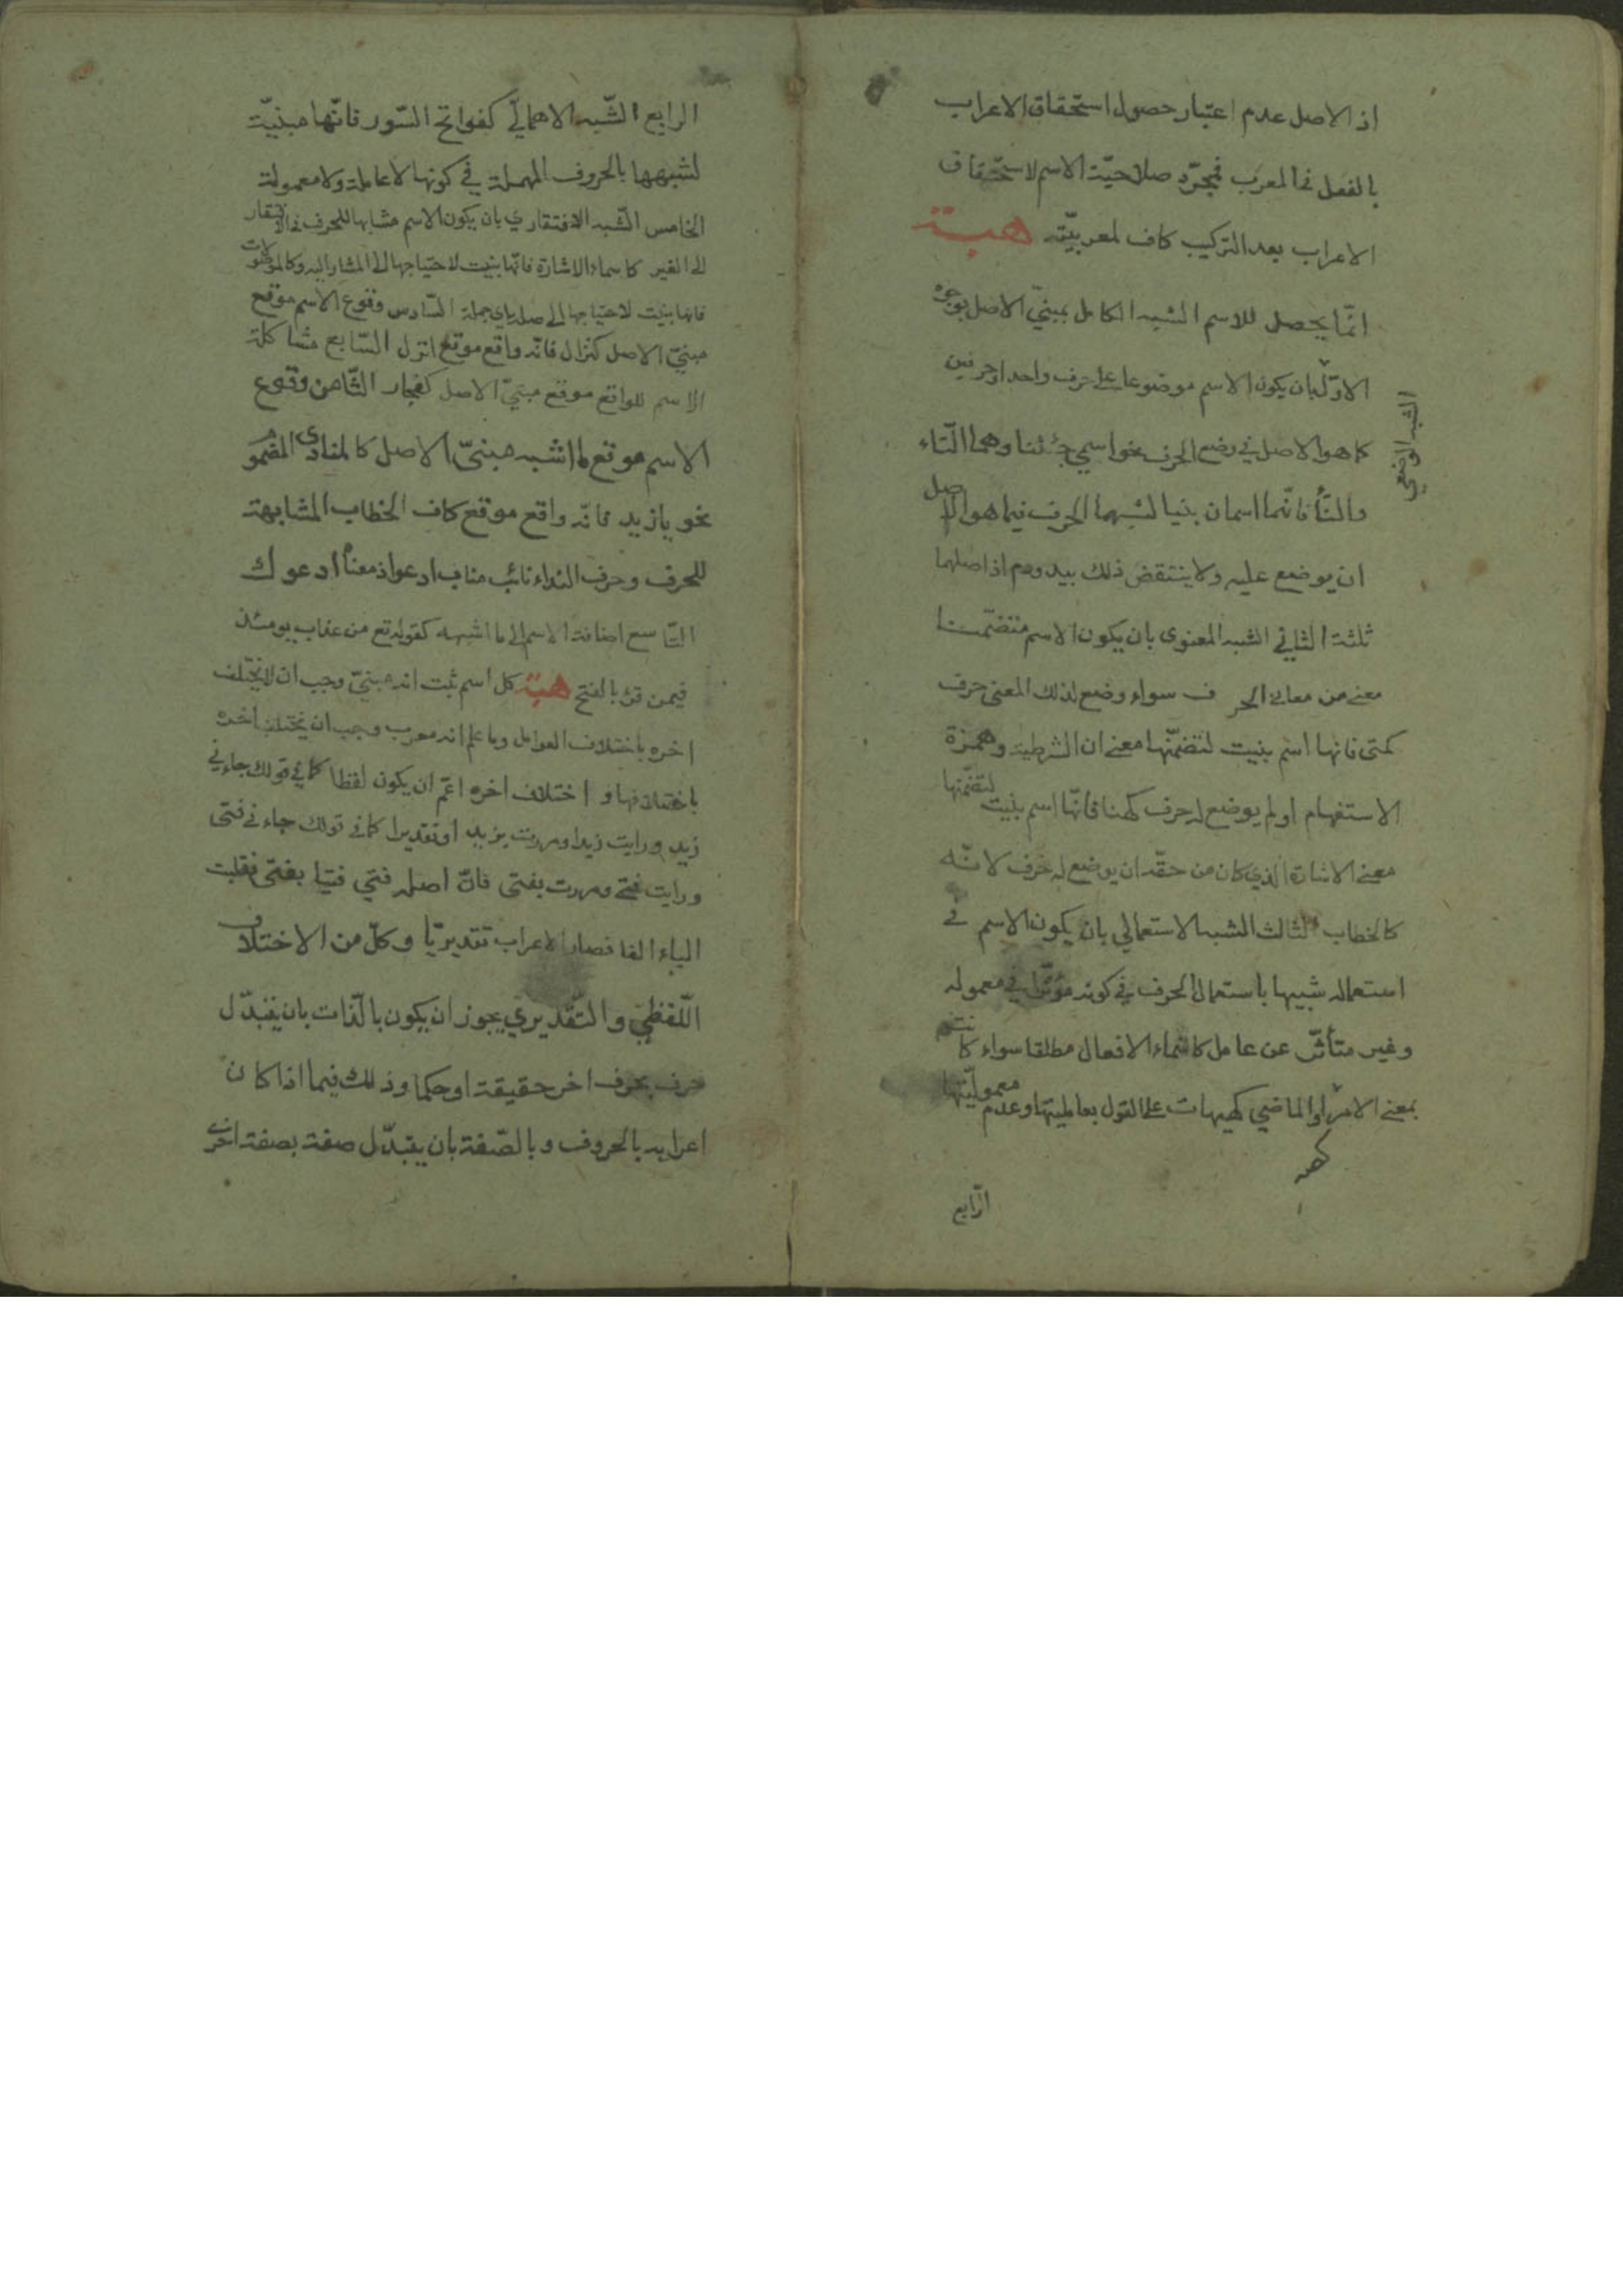 اذ الاصل عدم اعتبار حصول استحقاق الاعراب
بالفعل في المعرب فمجرّد صلاحيّة الاسم لاستحقاق
الاعراب بعد التركيب كاف لمعربيّته هبة
انّما يحصل للاسم الشبه الكامل بمبنيّ الاصل بوجوه
الاوّل بان يكون الاسم موضوعا على حرف واحد او حرفين
الشبه الوضعي
كما هو الاصل في وضع الحرف نحو اسمي جئتنا وهما التّاء
والنّا فانّهما اسمان بنيا لشبههما الحرف فيما هو الاصل
ان يوضع عليه ولا ينتقض ذلك بيد ودم اذ اصلهما
ثلثة الثاني الشبه المعنوى بان يكون الاسم متضمّنا
معنى من معاني الحر ف سواء وضع لذلك المعنى حرف
كمتى فانها اسم بنيت لتضمّنها معنى ان الشرطية وهمزة
الاستفهام او لم يوضع له حرف كهنا فانّها اسم بنيت لتضمّنها
معنى الاشارة الذي كان من حقّه ان يوضع له حرف لانّه
كالخطاب الثالث الشبه الاستعمالي بان يكون الاسم في
استعماله شبيها باستعمال الحرف في كونه مؤثّرا في معموله
وغير متأثّر عن عامل كاسماء الافعال مطلقا سواء كانت
بمعنى الامر او الماضي كهيهات على القول بعامليتها وعدم معموليّتها
كصه
الرّابع
الرابع الشّبه الاهماليّ كفواتح السّور فانّها مبنيّة
لشبهها بالحروف المهملة في كونها لا عاملة ولا معمولة
الخامس الشّبه الافتقاري بان يكون الاسم مشابها للحرف في الافتقار
الى الغير كاسماء الاشارة فانّها بنيت لاحتياجها الى المشار اليه وكالموصولات
فانها بنيت لاحتياجها الى صلة اي جملة السّادس وقوع الاسم موقع
مبنيّ الاصل كنزال فانّه واقع موقع انزل السّابع مشاكلة
الاسم للواقع موقع مبنيّ الاصل كفجار الثّامن وقوع
الاسم موقع ما اشبه مبنىّ الاصل كالمنادى المضموم
نحو يا زيد فانّه واقع موقع كاف الخطاب المشابهة
للحرف وحرف النداء نائب مناب ادعو اذ معناه ادعوك
التّاسع اضافة الاسم الى ما اشبهه كقوله تع من عذاب يومئذ
فيمن قرء بالفتح هبة كل اسم ثبت انه مبنيّ وجب ان لا يختلف
اخره باختلاف العوامل وما علم انه معرب وجب ان يختلف اخره
باختلافها و اختلاف اخره اعمّ ان يكون لفظا كما في قولك جاءني
زيد ورايت زيدا ومررت بزيد او تقديرا كما في قولك جاءني فتى
ورايت فتى ومررت بفتى فانّ اصله فتي فتيا بفتي فقلبت
الياء الفا فصار الاعراب تقديريّا وكلّ من الاختلاف
اللّفظيّ والتّقديري يجوز ان يكون بالذّات بان يتبدّل
حرف بحرف اخر حقيقة او حكما وذلك فيما اذا كان
اعرابه بالحروف وبالصّفة بان يتبدّل صفة بصفة اخرى